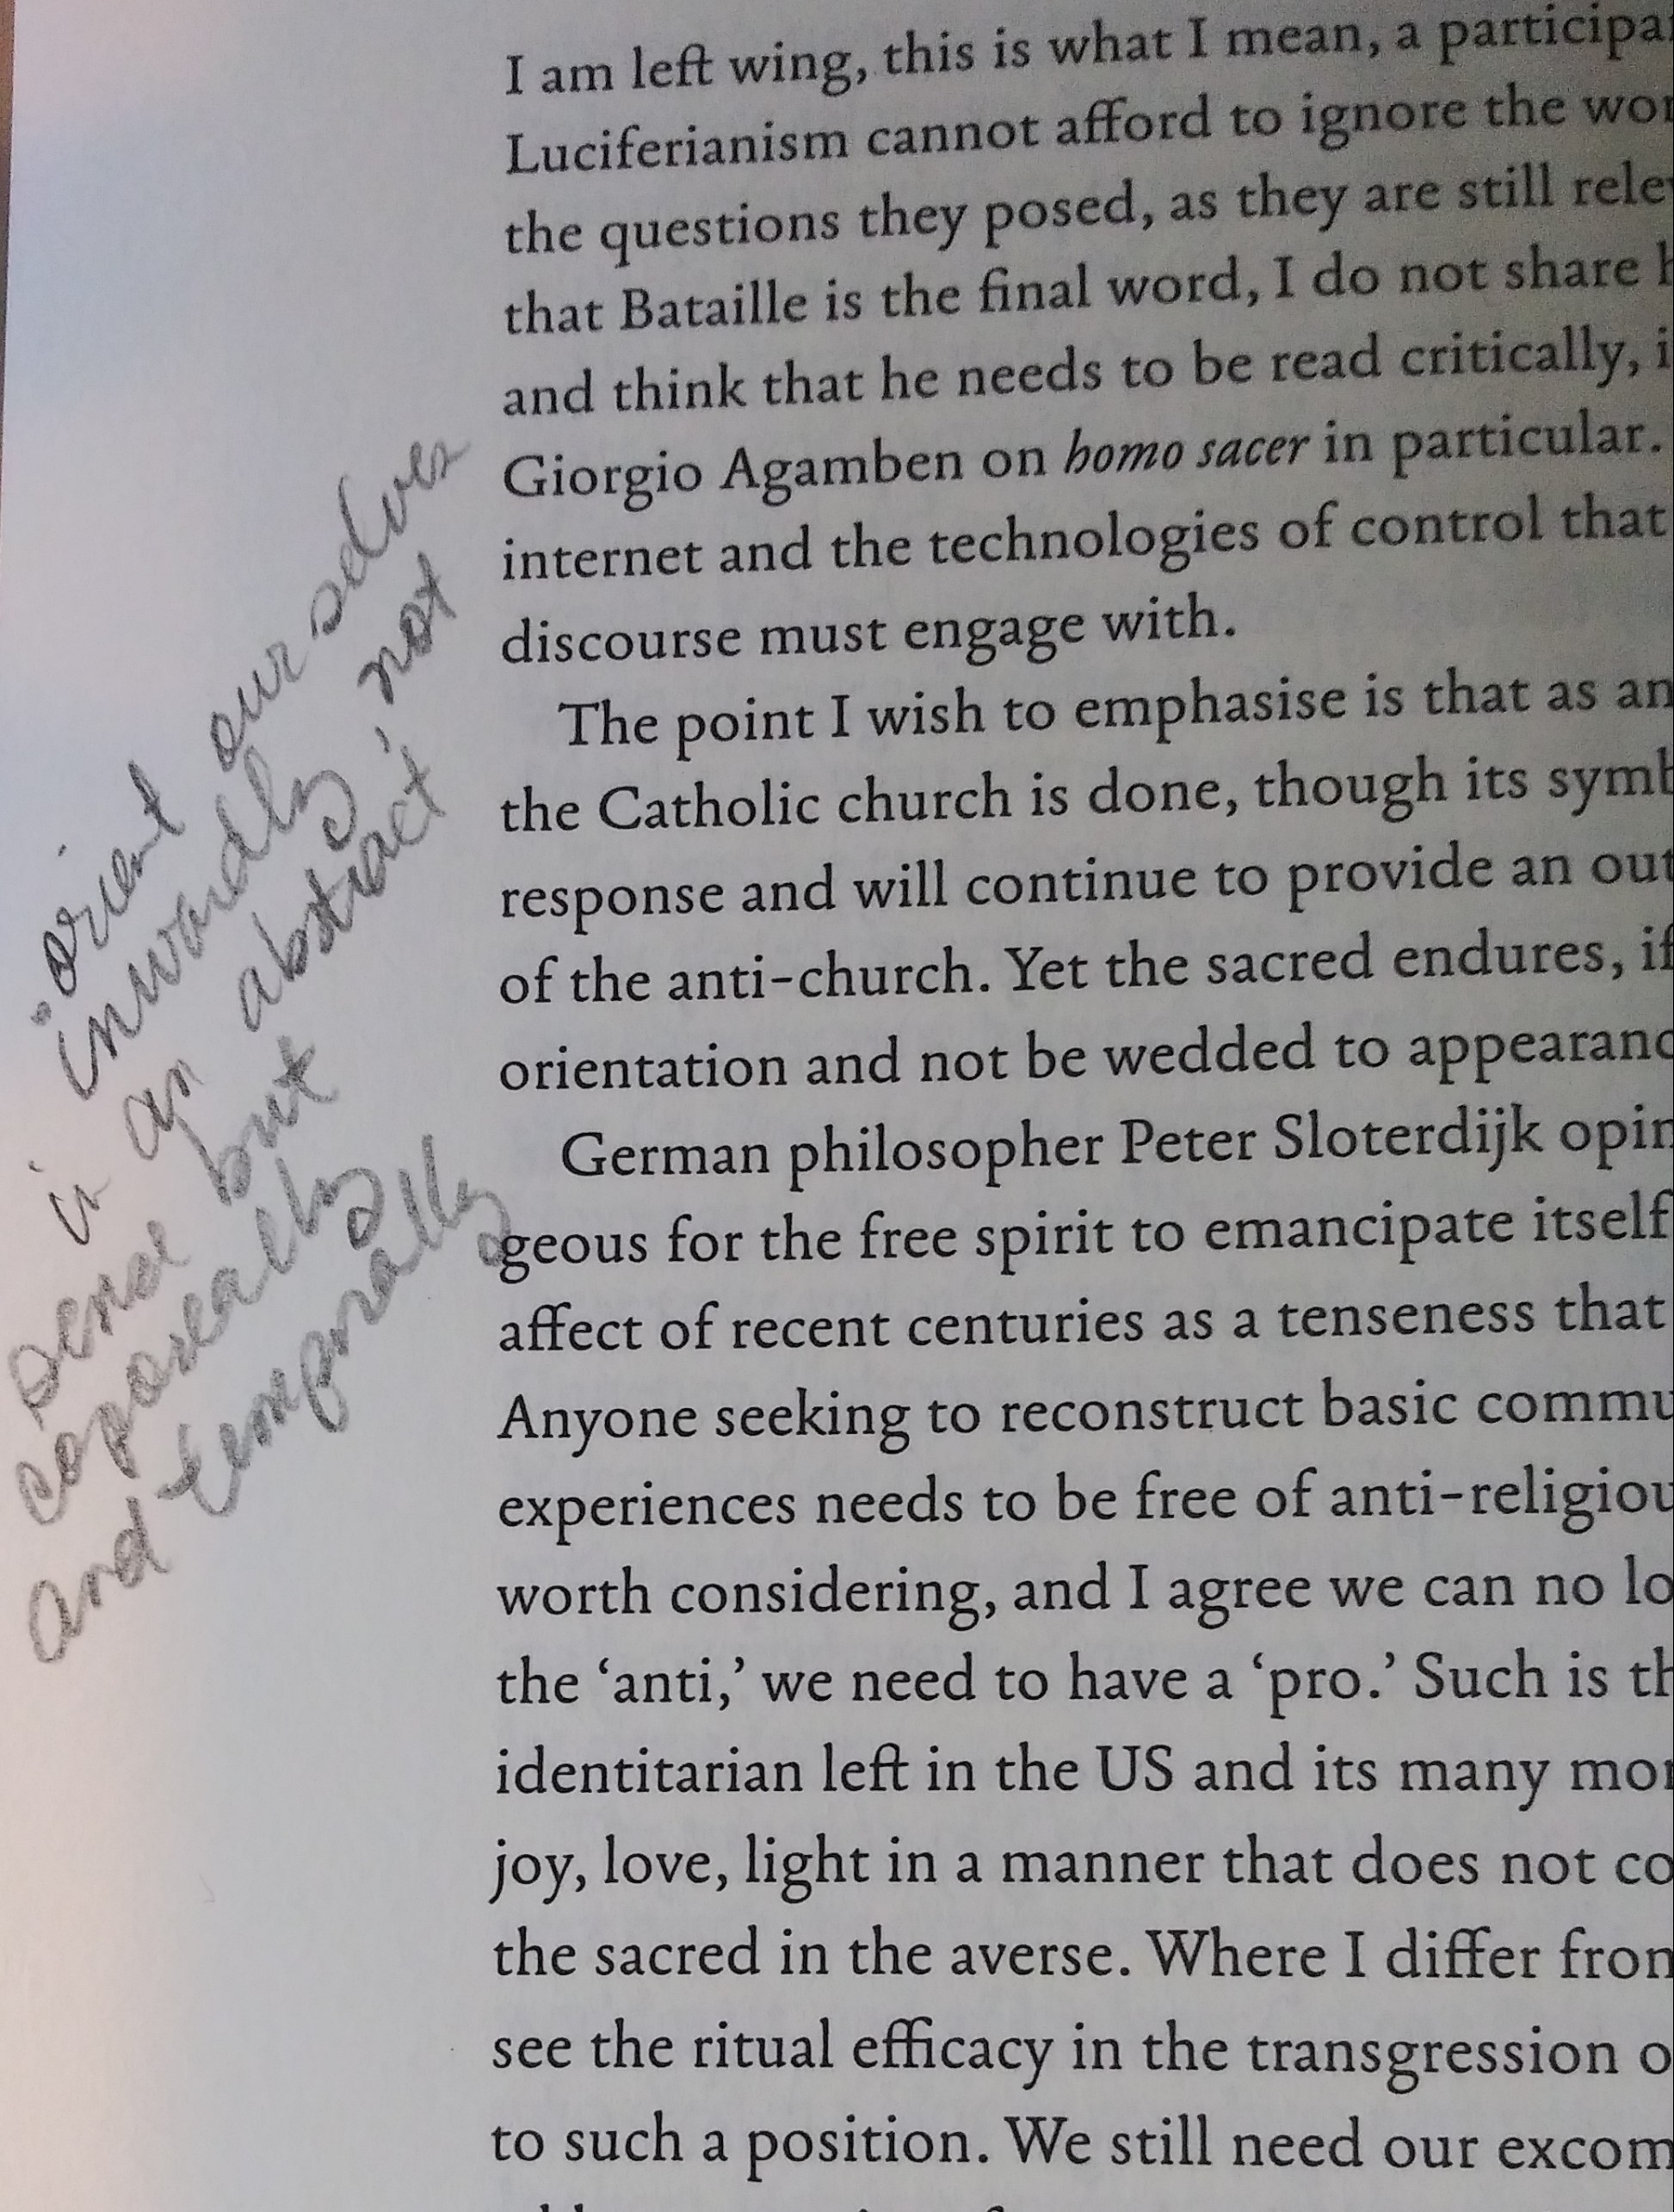 orient ourselves
inwardly, not
in an abstract
sense but
coporeally
and temporally
I am left wing, this is what I mean, a
Luciferianism cannot afford to ignore the
the questions they posed, as they are still
that Bataille is the final word, I do not share
and think that he needs to be read critically,
Giorgio Agamben on homo sacer in particular.
internet and the technologies of control that
discourse must engage with.
The point I wish to emphasise is that as
the Catholic church is done, though its
response and will continue to provide an
of the anti-church. Yet the sacred endures, if
orientation and not be wedded to
German philosopher Peter Sloterdijk
geous for the free spirit to emancipate itself
affect of recent centuries as a tenseness that
Anyone seeking to reconstruct basic
experiences needs to be free of
worth considering, and I agree we can no
the ‘anti,’ we need to have a ‘pro.’ Such is
identitarian left in the US and its many
joy, love, light in a manner that does not
the sacred in the averse. Where I differ
see the ritual efficacy in the transgression
to such a position. We still need our